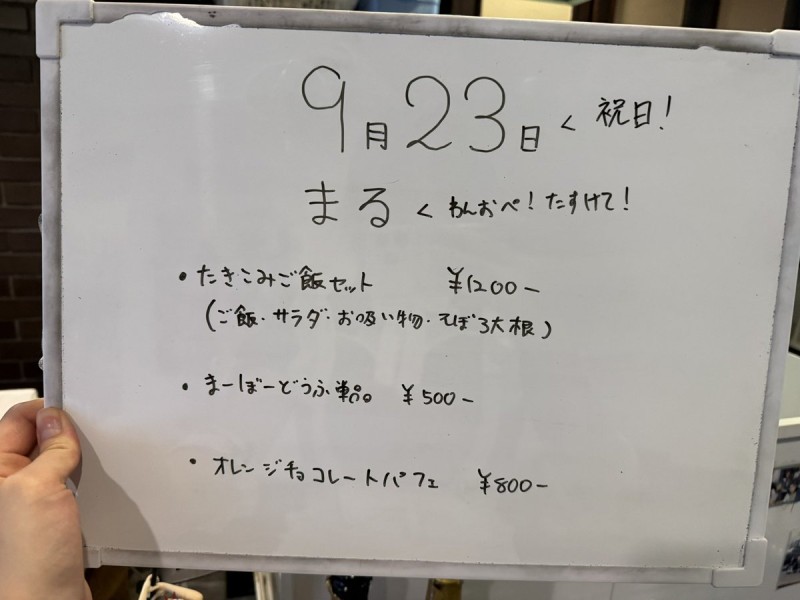 9月23日 < 祝日!
まる < わんおぺ!たすけて!
・たきこみご飯セット ¥1200-
(ご飯・サラダ・お吸い物・そぼろ大根)
・まーぼーどうふ単品。 ¥500-
・オレンジチョコレートパフェ ¥800-